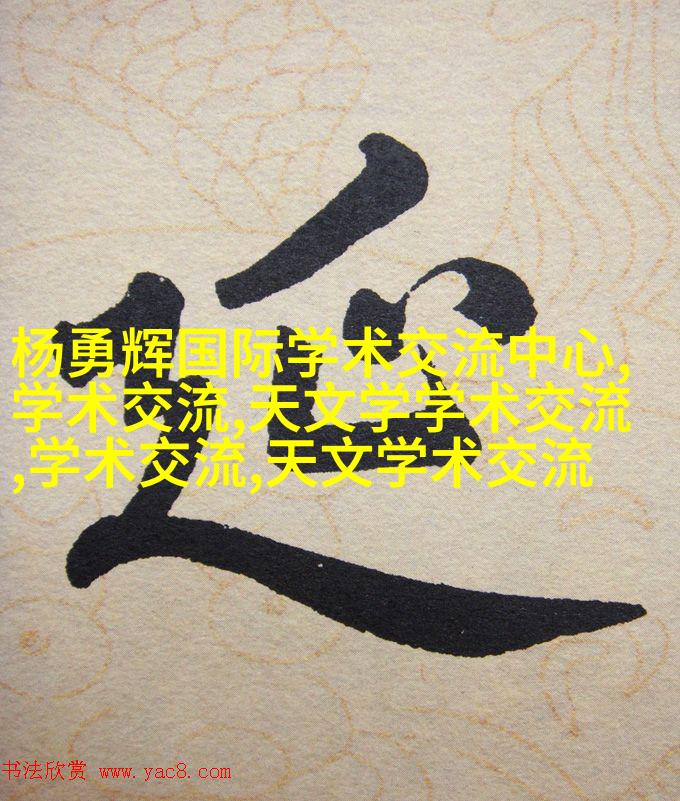 杨勇辉国际学术交流中心,
学术交流,天文学学术交流
,学术交流,天文学术交流
书法欣赏 www.yac8.com